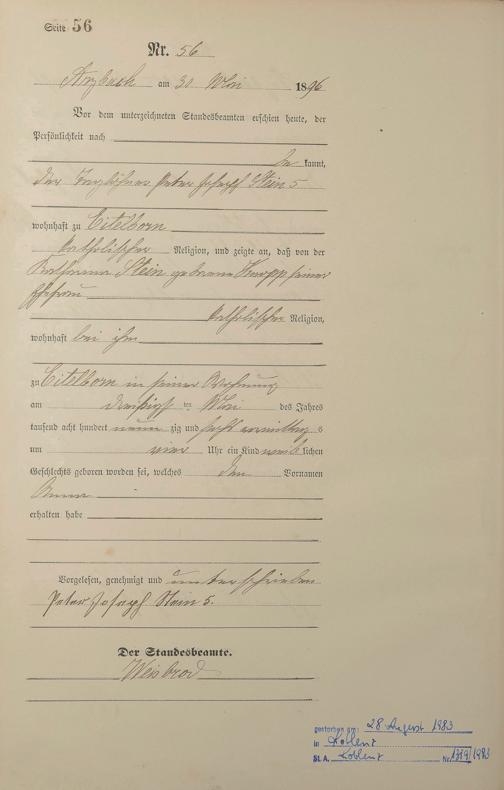 Seite 56
Nr. 56
Arzbach am 30 Mai 1896
Vor dem unterzeichneten Standesbeamten erschien heute, der
Persönlichkeit nach
be kannt,
der Taglöhner Peter Joseph Stein 5
wohnhaft zu Eitelborn
katholischer Religion, und zeigte an, daß von der
Katharina Stein geborene Knopp seiner
Ehefrau
katholischer Religion,
wohnhaft bei ihm
zu Eitelborn in seiner Wohnung
am dreißigsten Mai des Jahres
tausend acht hundert neun zig und sechs vormittags
um vier Uhr ein Kind weiblichen
Geschlechts geboren worden sei, welches den Vornamen
Anna
erhalten habe
Vorgelesen, genehmigt und unterschrieben
Peter Joseph Stein 5.
Der Standesbeamte.
Weisbrod
gestorben am: 28 August 1983
in Koblenz
St. A. Koblenz Nr. 1319/1983